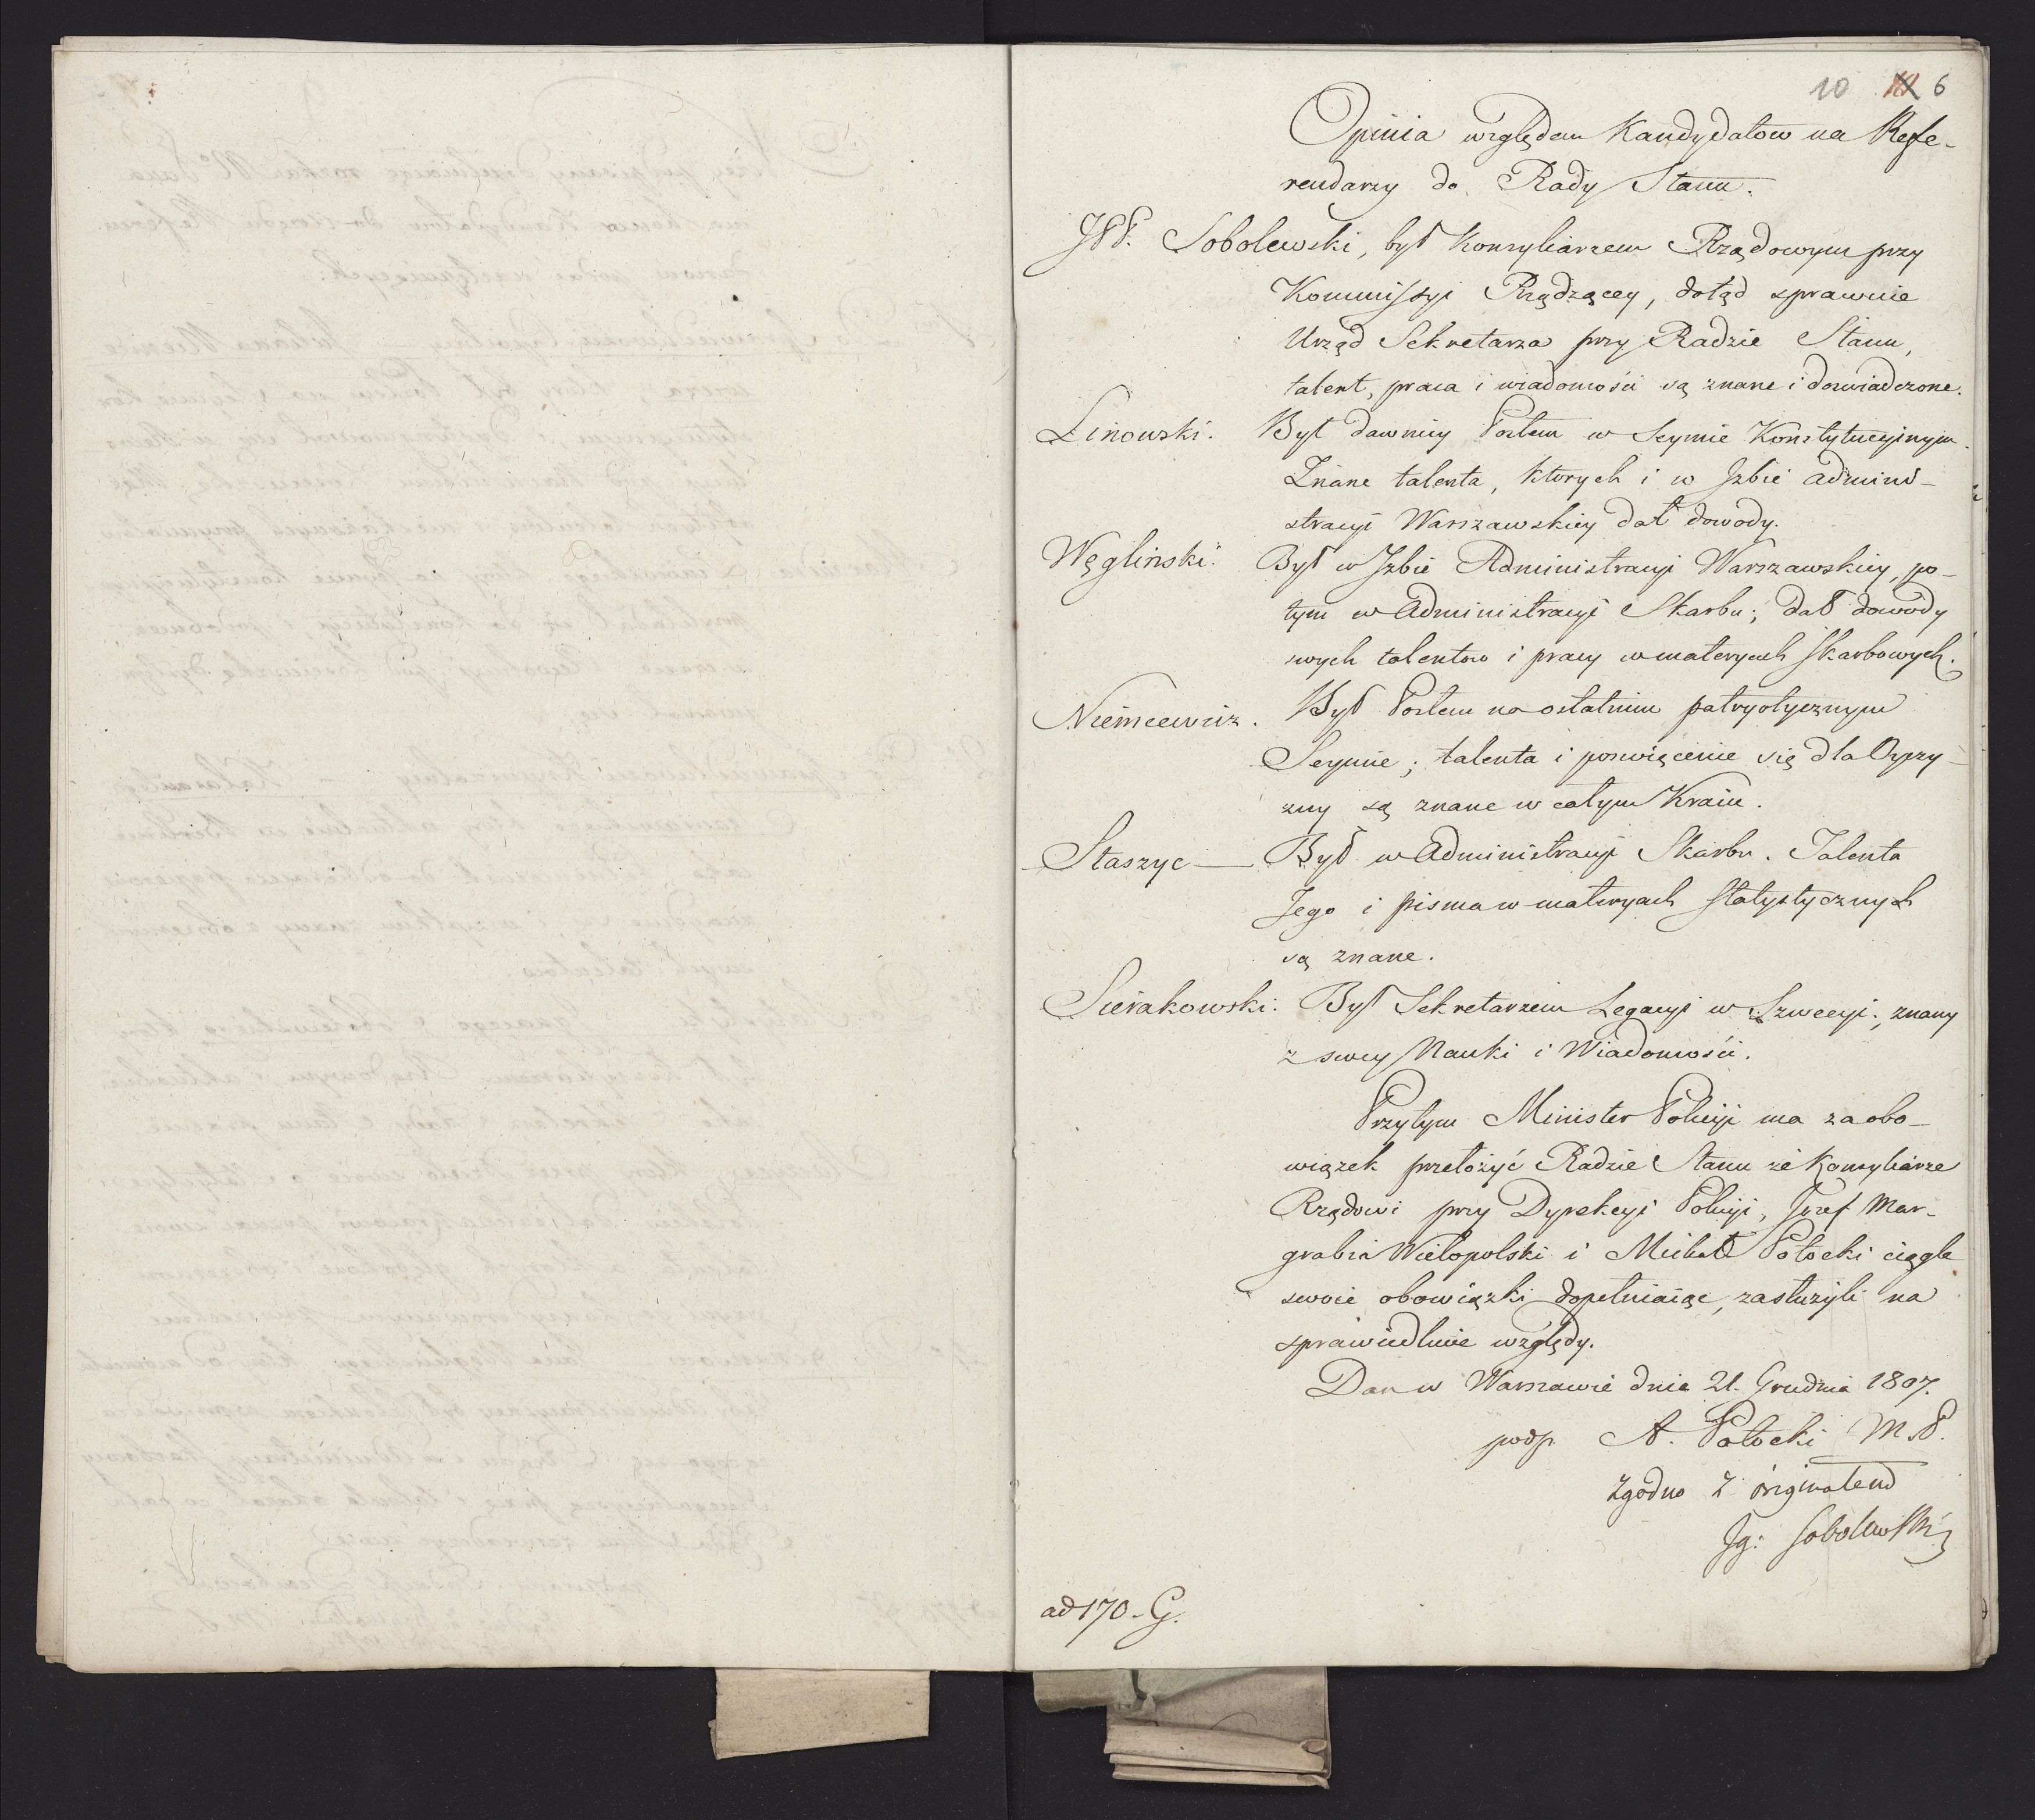 10 6
Opinia względem Kandydatow na Refe-
rendarzy do Rady Stanu.
JPP. Sobolewski, był Konsyliarzem Rządowym przy
Kommissyi Rządzącey, dotąd sprawnie
Urząd Sekretarza przy Radzie Stanu,
talent, praca i wiadomości są znane i doswiadczone.
Linowski. Był dawniey Posłem w Seymie Konstytucyinym.
Znane talenta, ktorych i w Jzbie admini-
stracyi Warszawskiey dał dowody.
Węglinski. Był w Jzbie Administracyi Warszawskiey, po-
tym w Administracyi Skarbu; dał dowody
swych talentow i pracy w materyach skarbowych.
Niemcewicz. Był Posłem na ostatnim patryotycznym
Seymie; talenta i poswięcenie się dla Oyczy-
zny są znane w całym Kraiu.
Staszyc — Był w Administracyi Skarbu. Talenta
Jego i pisma w materyach statystycznych
są znane.
Sierakowski. Był Sekretarzem Legacyi w Szwecyi; znany
z swey Nauki i Wiadomości.
Przytym Minister Policyi ma za obo-
wiązek przełożyć Radzie Stanu że Konsyliarze
Rządowi przy Dyrekcyi Policyi, Jozef Mar-
grabia Wielopolski i Michał Potocki ciągle
swoie obowiązki dopełniaiąc, zasłużyli na
sprawiedliwe względy.
Dan w Warszawie dnia 21. Grudnia 1807.
podp. A. Potocki M.P.
Zgodno z originałem
Jg: Sobolewski
ad 170-G.